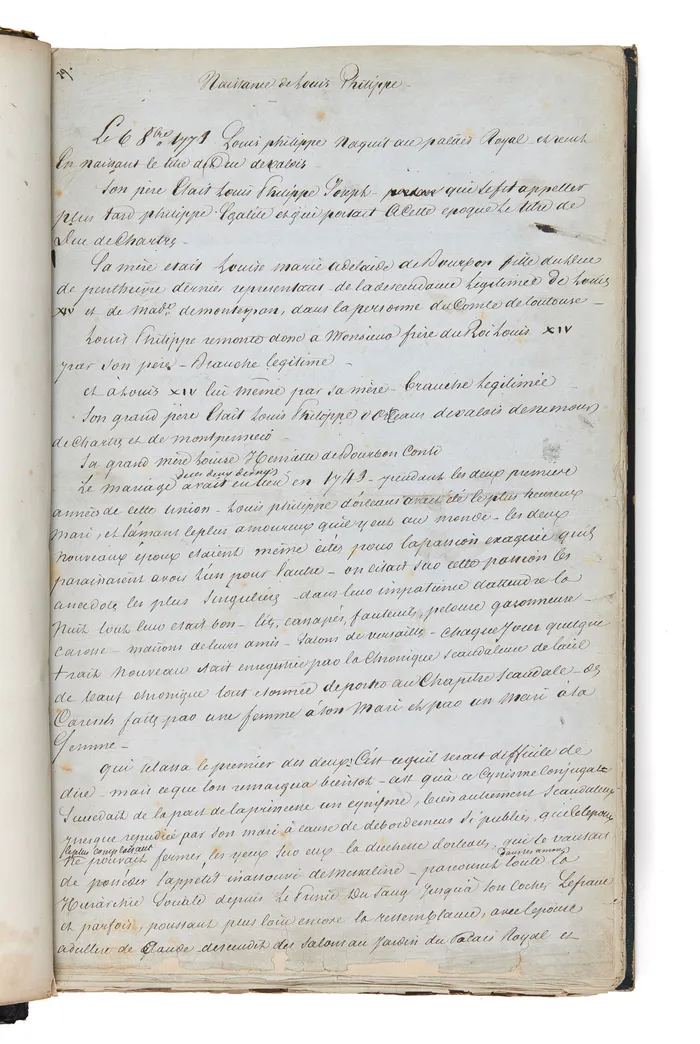 29.
Naissance de Louis Philippe –
Le 6 8bre 1773 Louis philippe naquit au palais Royal et reçut
En naissant le titre de Duc de valois –
Son père était Louis Philippe Joseph – qui se fit appeller
plus tard philippe Égalité et qui portait à cette époque le titre de
Duc de Chartres –
Sa mère était Louise marie adelaide de Bourbon fille du duc
de penthièvre dernier représentant de la descendance légitimée de Louis
XIV et de made de montespan, dans la personne du Comte de toulouse –
Louis Philippe remonte donc à Monsieur frère du Roi Louis XIV
par son père – Branche légitime –
et à Louis XIV lui même par sa mère – branche légitimée –
Son grand père était Louis Philippe d'Orléans de valois de nemours
de Chartres et de montpensier –
Sa grand mère Louise Henriette de Bourbon Conti
de ces deux
Le mariage avait eu lieu en 1743 – pendant les deux premières
années de cette union – Louis philippe d'orléans avait été le plus heureux
Mari, et l'amant le plus amoureux qu'il y eut au monde – les deux
Nouveaux époux étaient même cités pour la passion exagérée qu'ils
paraissaient avoir l'un pour l'autre – on citait sur cette passion les
anecdotes les plus singulières – dans leur impatience d'attendre la
Nuit tout leur était bon – lits, canapés, fauteuils, pelouse gazonneuse –
Carosse – maisons de leurs amis – Salons de versailles – chaque jour quelque
trait nouveau était enregistré par la Chronique scandaleuse de l'œil
de bœuf chronique tout étonnée de porter au Chapitre scandale – des
Caresses faites par une femme à son Mari et par un Mari à sa
femme –
qui se lassa le premier des deux C'est ce qu'il serait difficile de
dire – mais ce que l'on remarqua bientôt – c'est qu'à ce Cynisme Conjugal
Succédait de la part de la princesse un cynisme, bien autrement scandaleux
presque répudiée par son mari à cause de débordemens si publics, que l'époux
le plus complaisant
ne pouvait fermer les yeux sur eux la duchesse d'orléans, qui se vantait
de posséder l'appétit inassouvi de messaline – parcourut toute la
Hiérarchie Sociale depuis le Prince Du Sang jusqu'à son Cocher Lefranc
et parfois, poussant plus loin encore la ressemblance, avec l'épouse
adultère de Claude descendit des salons au Jardin du Palais Royal et